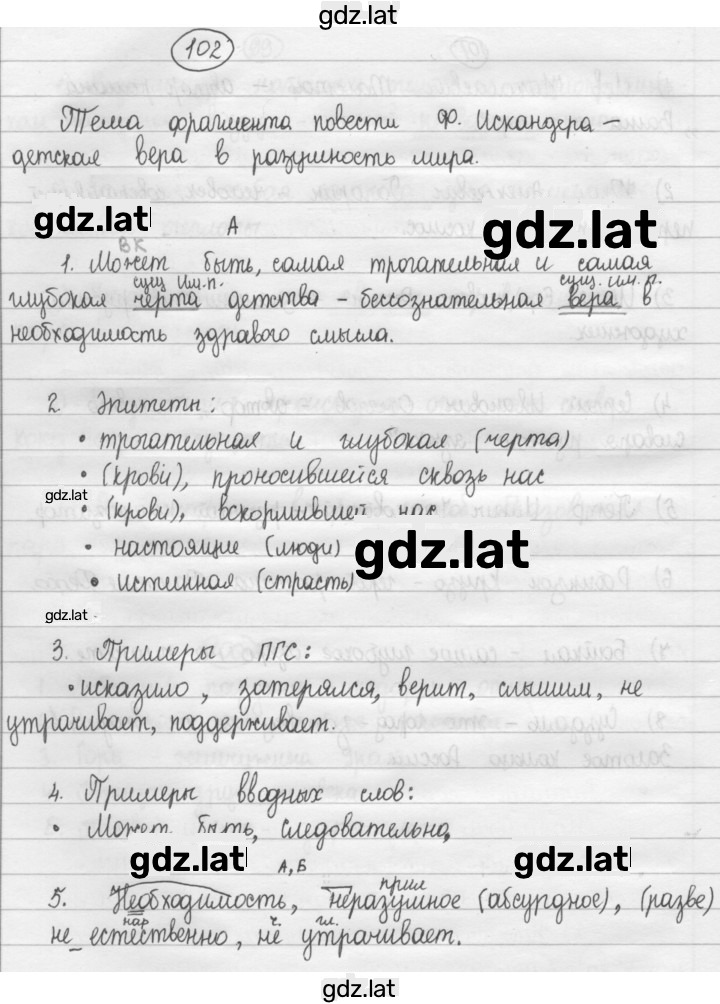 gdz.lat
102
Тема фрагмента повести Ф. Искандера –
детская вера в разумность мира.
gdz.lat
А
gdz.lat
ВК
1. Может быть, самая трогательная и самая
сущ. им.п. сущ. им. п.
глубокая черта детства – бессознательная вера в
необходимость здравого смысла.
2 Эпитеты:
• трогательная и глубокая (черта)
• (крови), проносившейся сквозь нас
gdz.lat
• (крови), вскормившей
• настоящие (люди)
gdz.lat
• истинная (страсть)
gdz.lat
3. Примеры ПГС:
• исказило, затерялся, верит, слышим, не
утрачивает, поддерживает.
4. Примеры вводных слов:
• Может быть, следовательно,
gdz.lat
А, Б
gdz.lat
прил
5. Необходимость, неразумное (абсурдное), (разве)
нар ч. гл.
не естественно, не утрачивает.
gdz.lat